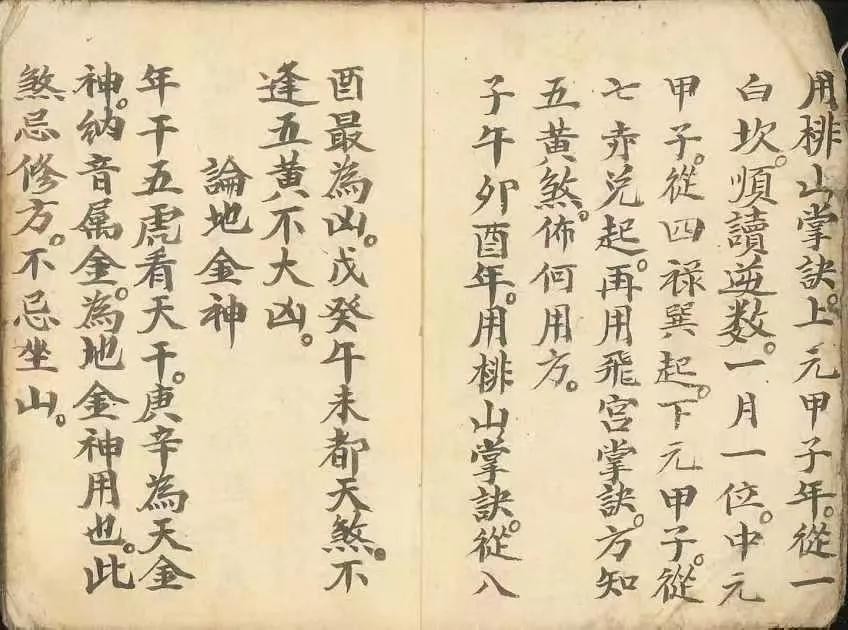 用排山掌訣。上元甲子年。從一
白坎。順讀逆数。一月一位。中元
甲子。從四禄巽起。下元甲子。從
七赤兌起。再用飛宫掌訣。方知
五黄煞。佈何用方。
子午夘酉年。用排山掌訣。從八
酉最為凶。戊癸午未都天煞。不
逢五黄不大凶。
論地金神
年干五虎看天干。庚辛為天金
神。纳音属金。為地金神用也。此
煞忌修方。不忌坐山。